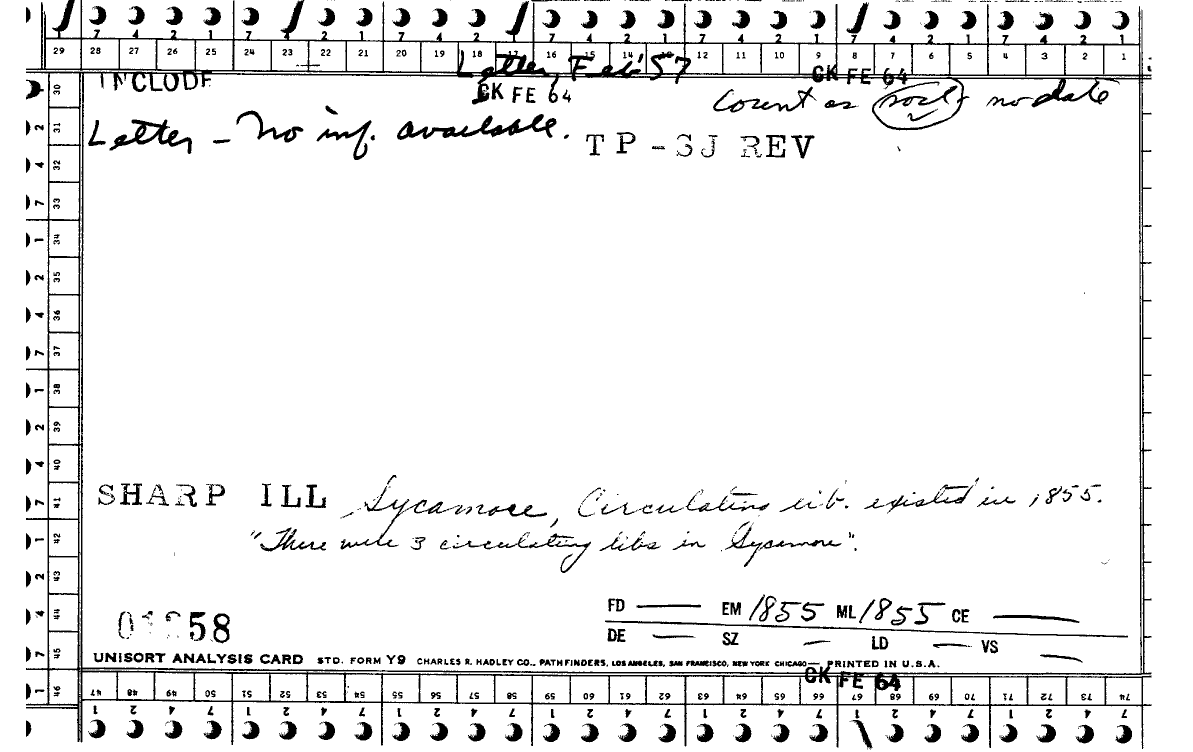 7 4 2 1 7 4 2 1 7 4 2 1 7 4 2 1 7 4 2 1 7 4 2 1 7 4 2 1
29 28 27 26 25 24 23 22 21 20 19 18 17 16 15 14 13 12 11 10 9 8 7 6 5 4 3 2 1
Letter, Feb '57
CK FE 64
INCLUDE
CK FE 64
Count as no date
Letter - No inf. available.
TP - SJ REV
30
2 31
4 32
7 33
1 34
2 35
4 36
7 37
1 38
2 39
4 40
7 41
1 42
2 43
4 44
7 45
1 46
SHARP ILL Sycamore, Circulating lib. existed in 1855.
"There were 3 circulating libs in Sycamore".
FD — EM 1855 ML 1855 CE —
DE — SZ — LD — VS —
58
UNISORT ANALYSIS CARD STD. FORM Y9 CHARLES R. HADLEY CO., PATHFINDERS, LOS ANGELES, SAN FRANCISCO, NEW YORK CHICAGO — PRINTED IN U.S.A.
CK FE 64
47 48 49 50 51 52 53 54 55 56 57 58 59 60 61 62 63 64 65 66 67 68 69 70 71 72 73 74
1 2 4 7 1 2 4 7 1 2 4 7 1 2 4 7 1 2 4 7 1 2 4 7 1 2 4 7